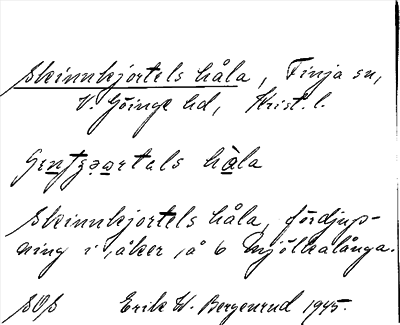 Skinnkjortels håla, Finja sn,
V. Göinge hd, Krist. l.
håla
Skinnkjortels håla, fördjup-
ning i åker å 6 Mjölkalånga.
Erik W. Bergenrud 1945.